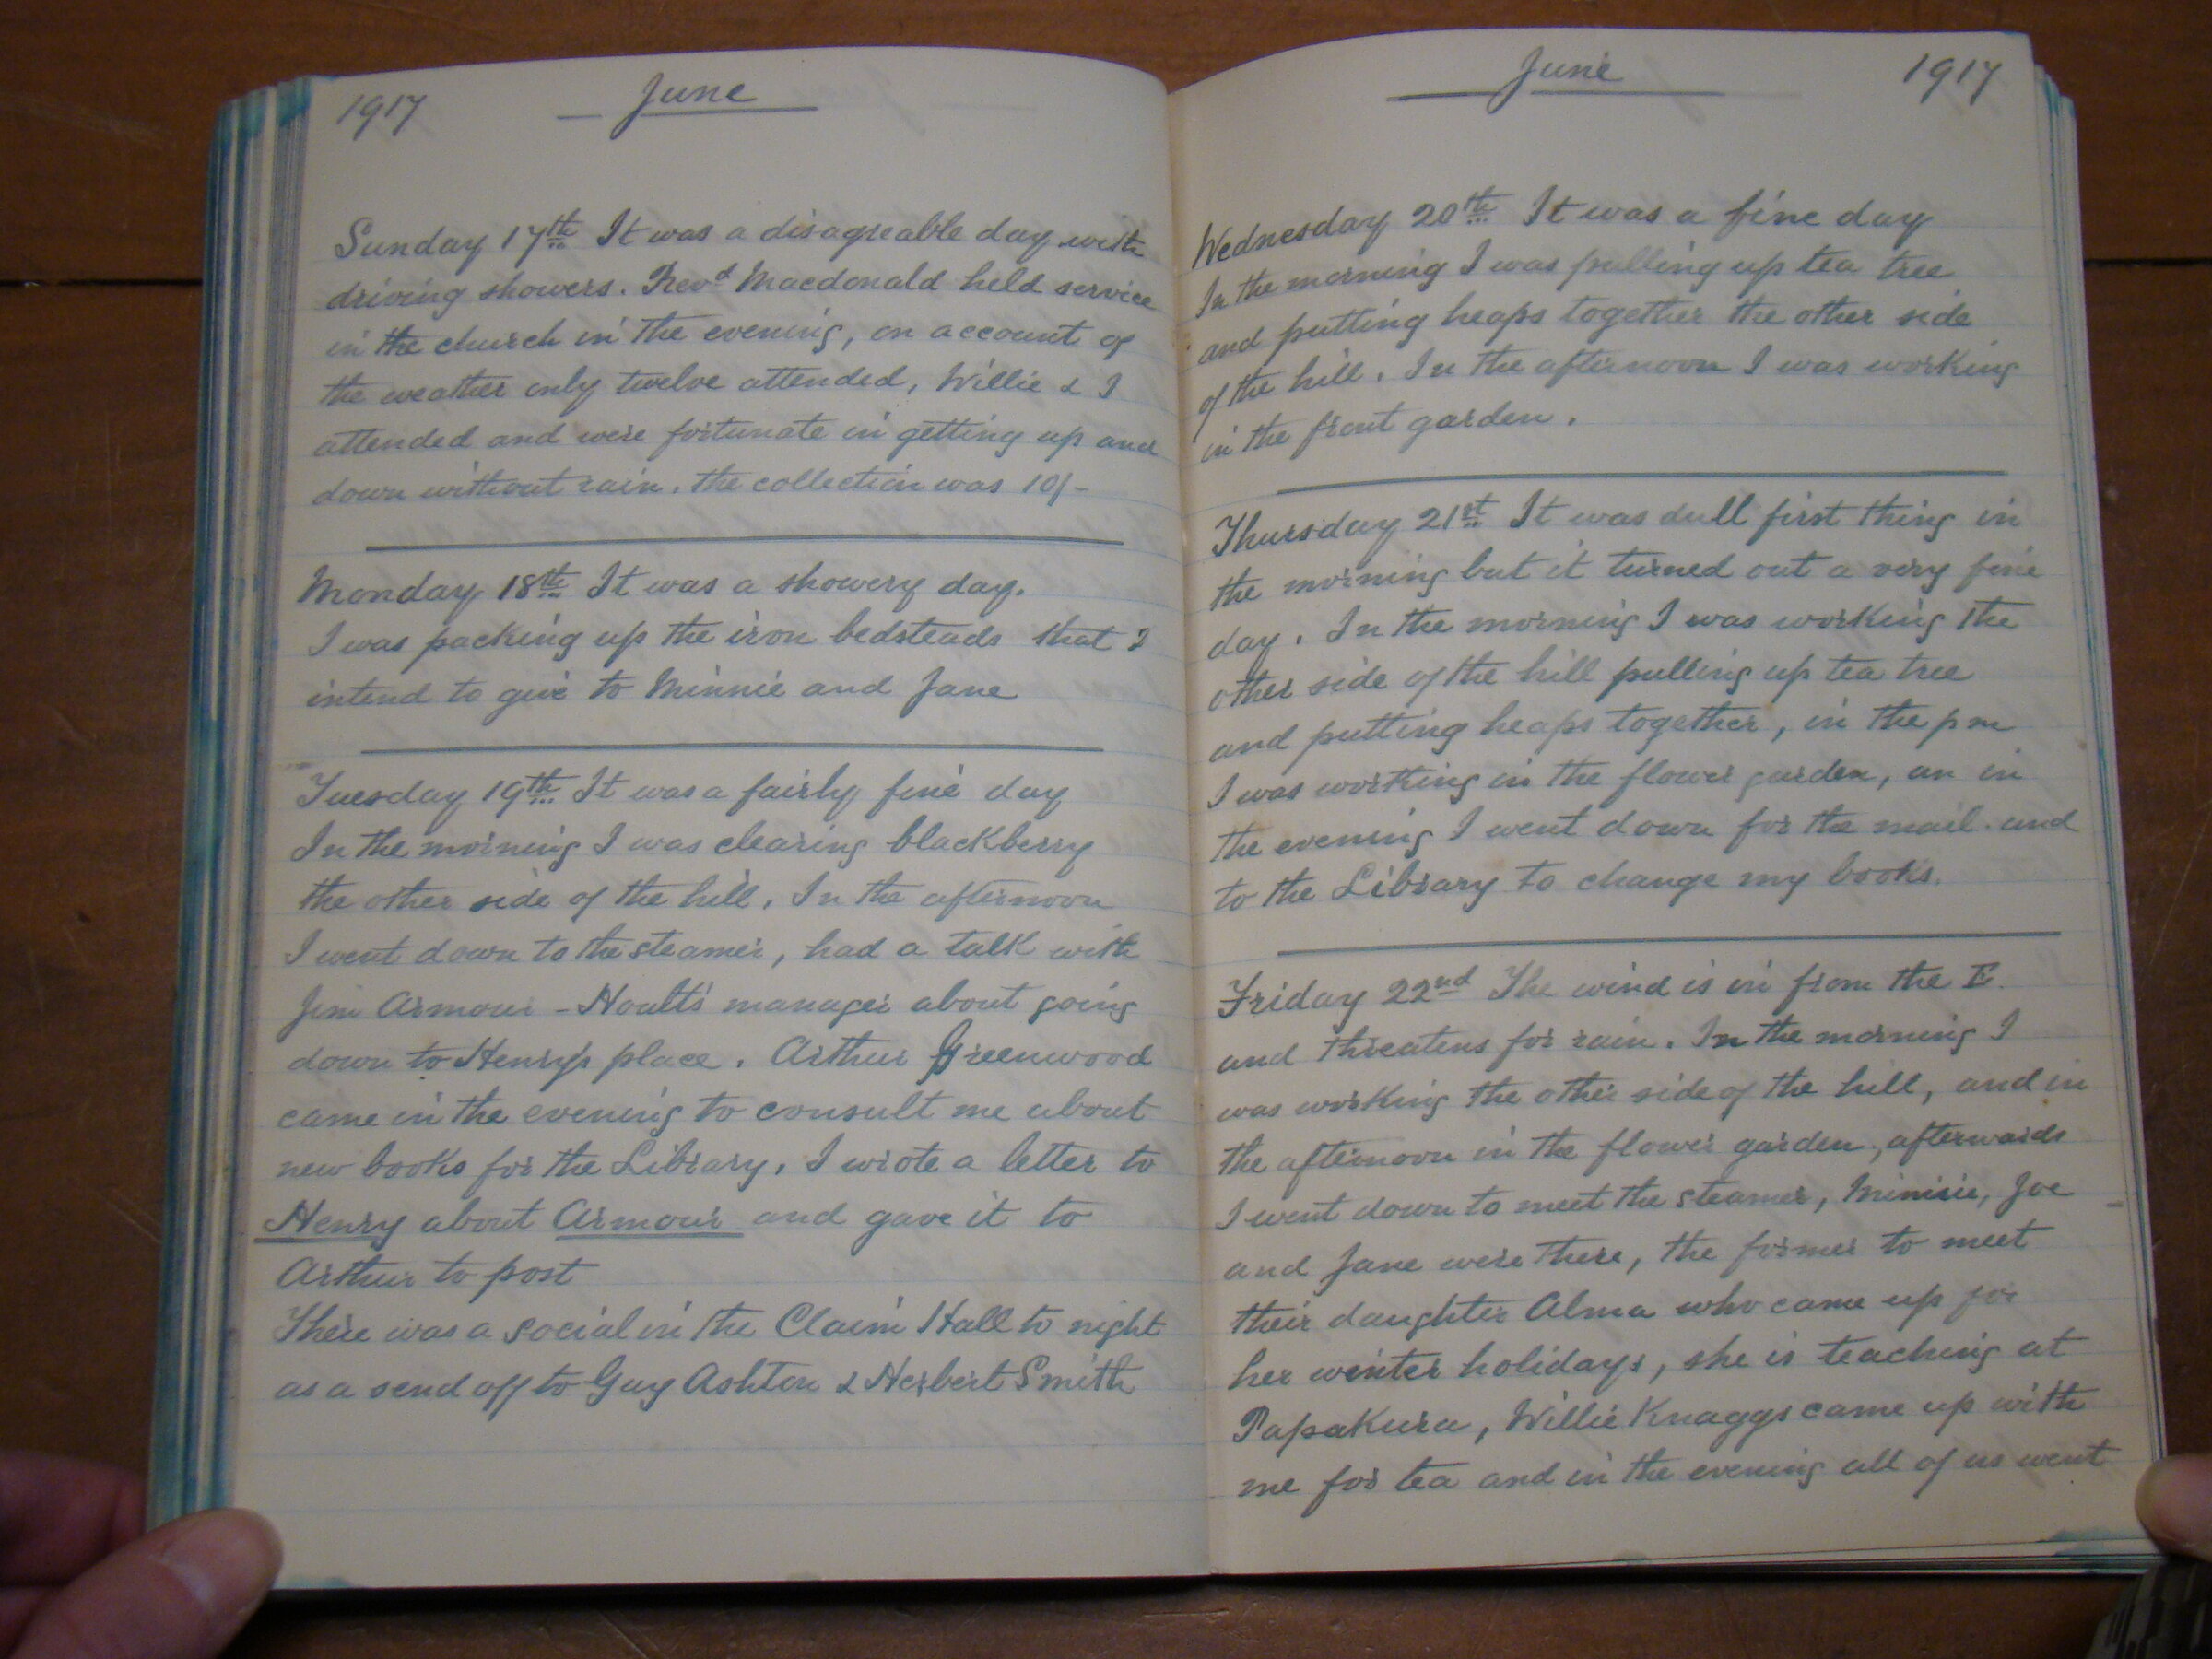 1917 June
Sunday 17th It was a disagreable day with
driving showers. Revd Macdonald held service
in the church in the evening, on account of
the weather only twelve attended, Willie & I
attended and were fortunate in getting up and
down without rain. the collection was 10/-
Monday 18th It was a showery day.
I was packing up the iron bedsteads that I
intend to give to Minnie and Jane
Tuesday 19th It was a fairly fine day
In the morning I was clearing blackberry
the other side of the hill. In the afternoon
I went down to the steamer, had a talk with
Jim Armour - Hoult's manager about going
down to Henry's place. Arthur Greenwood
came in the evening to consult me about
new books for the Library. I wrote a letter to
Henry about Armour and gave it to
Arthur to post
There was a social in the Claim Hall to night
as a send off to Guy Ashton & Herbert Smith
June 1917
Wednesday 20th It was a fine day
In the morning I was pulling up tea tree
and putting heaps together the other side
of the hill. In the afternoon I was working
in the front garden.
Thursday 21st It was dull first thing in
the morning but it turned out a very fine
day. In the morning I was working the
other side of the hill pulling up tea tree
and putting heaps together, in the pm
I was working in the flower garden, an in
the evening I went down for the mail. and
to the Library to change my books.
Friday 22nd The wind is in from the E.
and threatens for rain. In the morning I
was working the other side of the hill, and in
the afternoon in the flower garden, afterwards
I went down to meet the steamer, Minnie, Joe
and Jane were there, the former to meet
their daughter Alma who came up for
her winter holidays, she is teaching at
Papakura, Willie Knaggs came up with
me for tea and in the evening all of us went